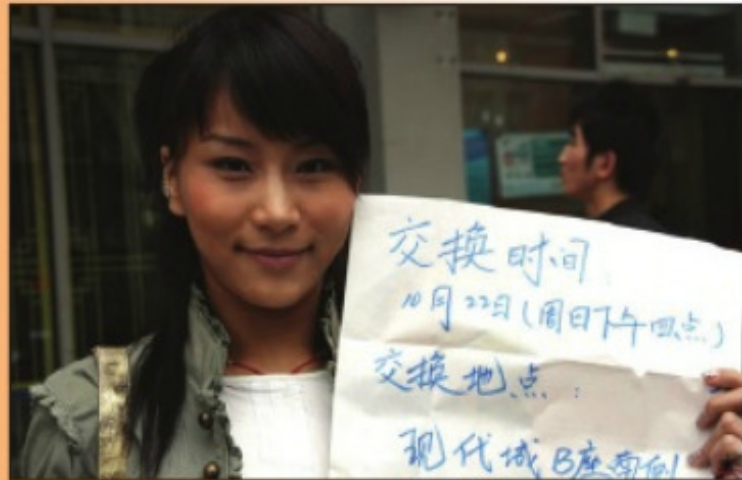 交换时间
10月22日(周日下午四点)
交换地点:
现代城B座南侧